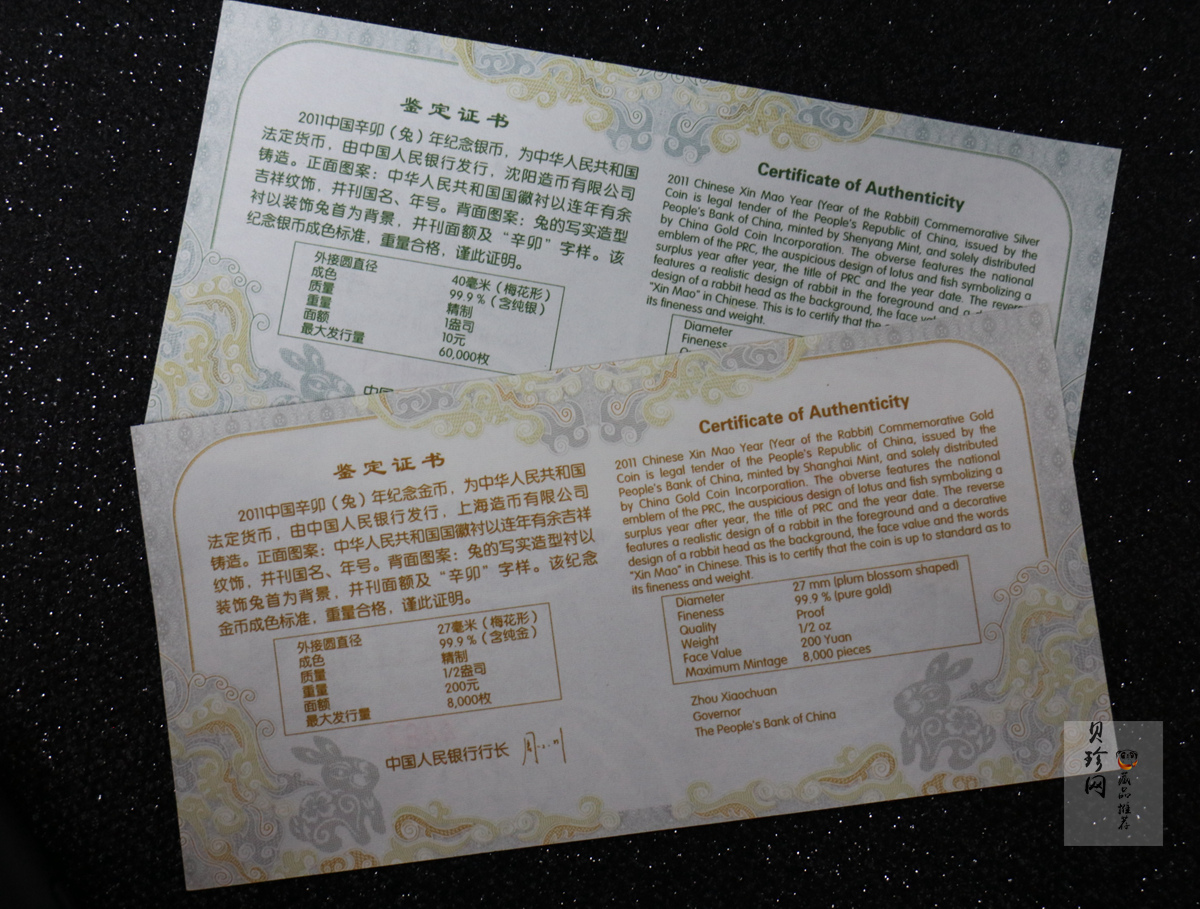 鉴定证书
2011中国辛卯（兔）年纪念银币，为中华人民共和国
法定货币，由中国人民银行发行，沈阳造币有限公司
铸造。正面图案：中华人民共和国国徽衬以连年有余
吉祥纹饰，并刊国名、年号。背面图案：兔的写实造型
衬以装饰兔首为背景，并刊面额及“辛卯”字样。该
纪念银币成色标准，重量合格，谨此证明。
外接圆直径 40毫米（梅花形）
成色 99.9%（含纯银）
质量 精制
重量 1盎司
面额 10元
最大发行量 60,000枚
中国
Certificate of Authenticity
2011 Chinese Xin Mao Year (Year of the Rabbit) Commemorative Silver
Coin is legal tender of the People's Republic of China, issued by the
People's Bank of China, minted by Shenyang Mint, and solely distributed
by China Gold Coin Incorporation. The obverse features the national
emblem of the PRC, the auspicious design of lotus and fish symbolizing a
surplus year after year, the title of PRC and the year date. The reverse
features a realistic design of rabbit in the foreground and a
design of a rabbit head as the background, the face
"Xin Mao" in Chinese. This is to certify that the
its fineness and weight.
Diameter
Fineness
鉴定证书
2011中国辛卯（兔）年纪念金币，为中华人民共和国
法定货币，由中国人民银行发行，上海造币有限公司
铸造。正面图案：中华人民共和国国徽衬以连年有余吉祥
纹饰，并刊国名、年号。背面图案：兔的写实造型衬以
装饰兔首为背景，并刊面额及“辛卯”字样。该纪念
金币成色标准，重量合格，谨此证明。
外接圆直径 27毫米（梅花形）
成色 99.9%（含纯金）
质量 精制
重量 1/2盎司
面额 200元
最大发行量 8,000枚
中国人民银行行长
Certificate of Authenticity
2011 Chinese Xin Mao Year (Year of the Rabbit) Commemorative Gold
Coin is legal tender of the People's Republic of China, issued by the
People's Bank of China, minted by Shanghai Mint, and solely distributed
by China Gold Coin Incorporation. The obverse features the national
emblem of the PRC, the auspicious design of lotus and fish symbolizing a
surplus year after year, the title of PRC and the year date. The reverse
features a realistic design of a rabbit in the foreground and a decorative
design of a rabbit head as the background, the face value and the words
"Xin Mao" in Chinese. This is to certify that the coin is up to standard as to
its fineness and weight.
Diameter 27 mm (plum blossom shaped)
Fineness 99.9 % (pure gold)
Quality Proof
Weight 1/2 oz
Face Value 200 Yuan
Maximum Mintage 8,000 pieces
Zhou Xiaochuan
Governor
The People's Bank of China
贝珍网
藏品推荐